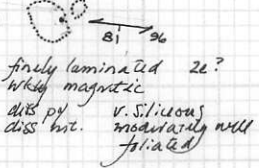 81 96
finely laminated 2e?
wkly magnetic
diss py v. Siliceous
diss mt. moderately well
foliated